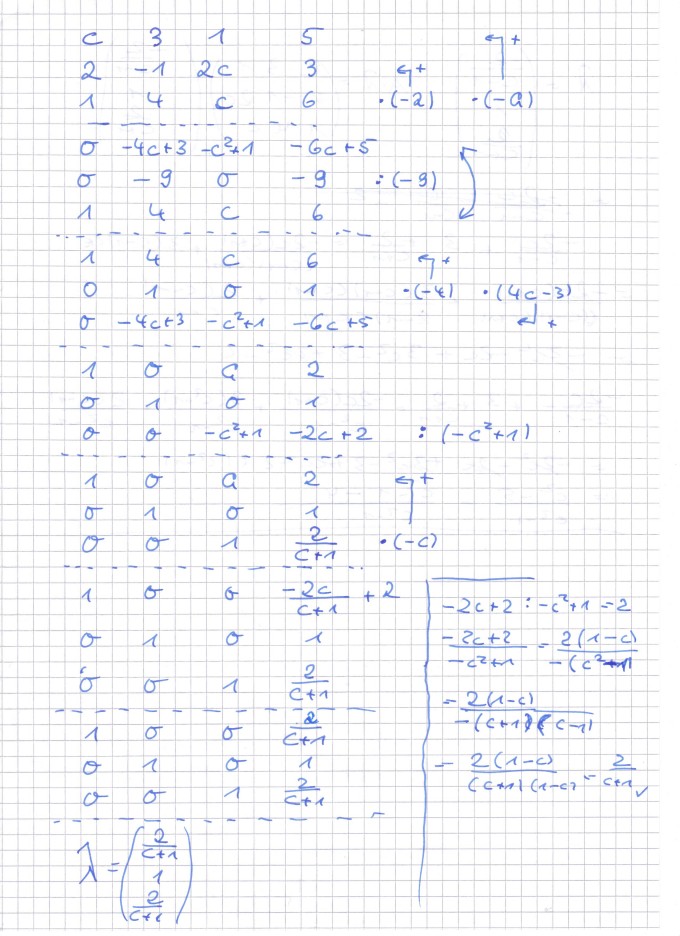 c 3 1 5 ↰+
2 -1 2c 3 ↰+
1 4 c 6 ·(-2) ·(-a)
0 -4c+3 -c²+1 -6c+5
0 -9 0 -9 :(-9)
1 4 c 6
1 4 c 6 ↰+
0 1 0 1 ·(-4) ·(4c-3)
0 -4c+3 -c²+1 -6c+5 ↵+
1 0 a 2
0 1 0 1
0 0 -c²+1 -2c+2 :(-c²+1)
1 0 a 2 ↰+
0 1 0 1
0 0 1 2/(c+1) ·(-c)
1 0 0 -2c/(c+1) + 2
0 1 0 1
0 0 1 2/(c+1)
1 0 0 2/(c+1)
0 1 0 1
0 0 1 2/(c+1)
λ = (2/(c+1) 1 2/(c+1))
-2c+2 : -c²+1 = 2
(-2c+2)/(-c²+1) = 2(1-c)/-(c²-1)
= 2(1-c)/-(c+1)(c-1)
= 2(1-c)/(c+1)(1-c) = 2/(c+1) ✓